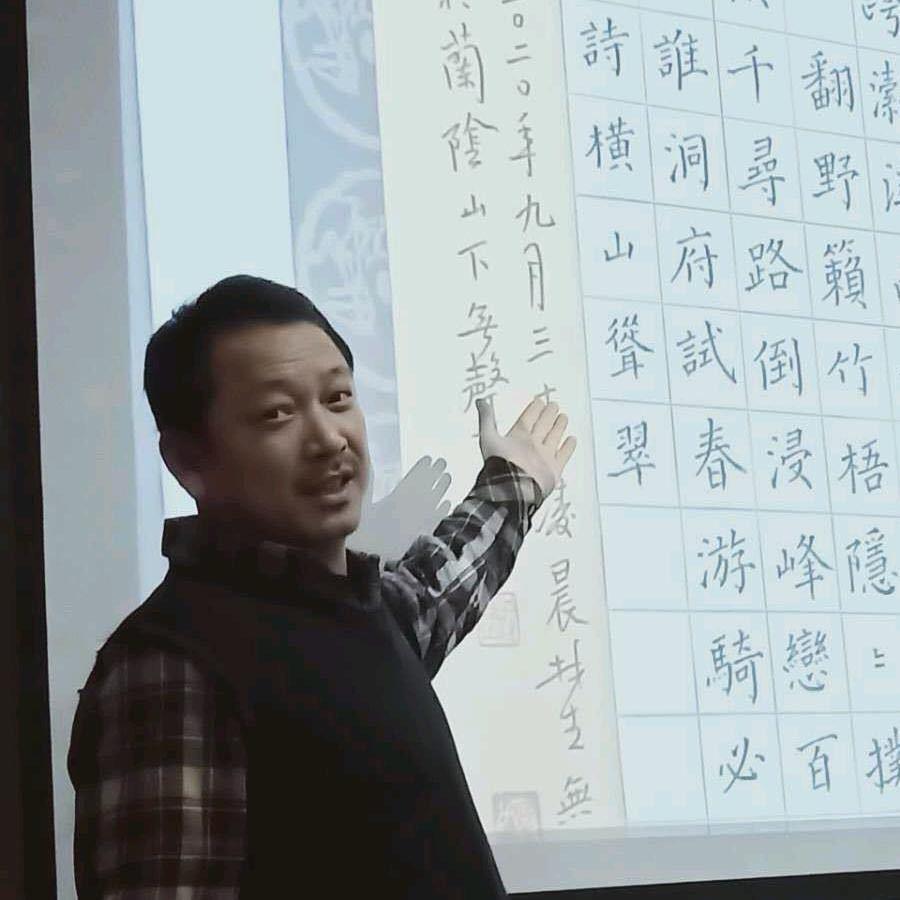 翻野籟竹梧隱〻撲
千尋路倒浸峰戀百
誰洞府試春游騎必
詩橫山聳翠
二〇二〇年九月三凌晨
蘭陰山下無聲